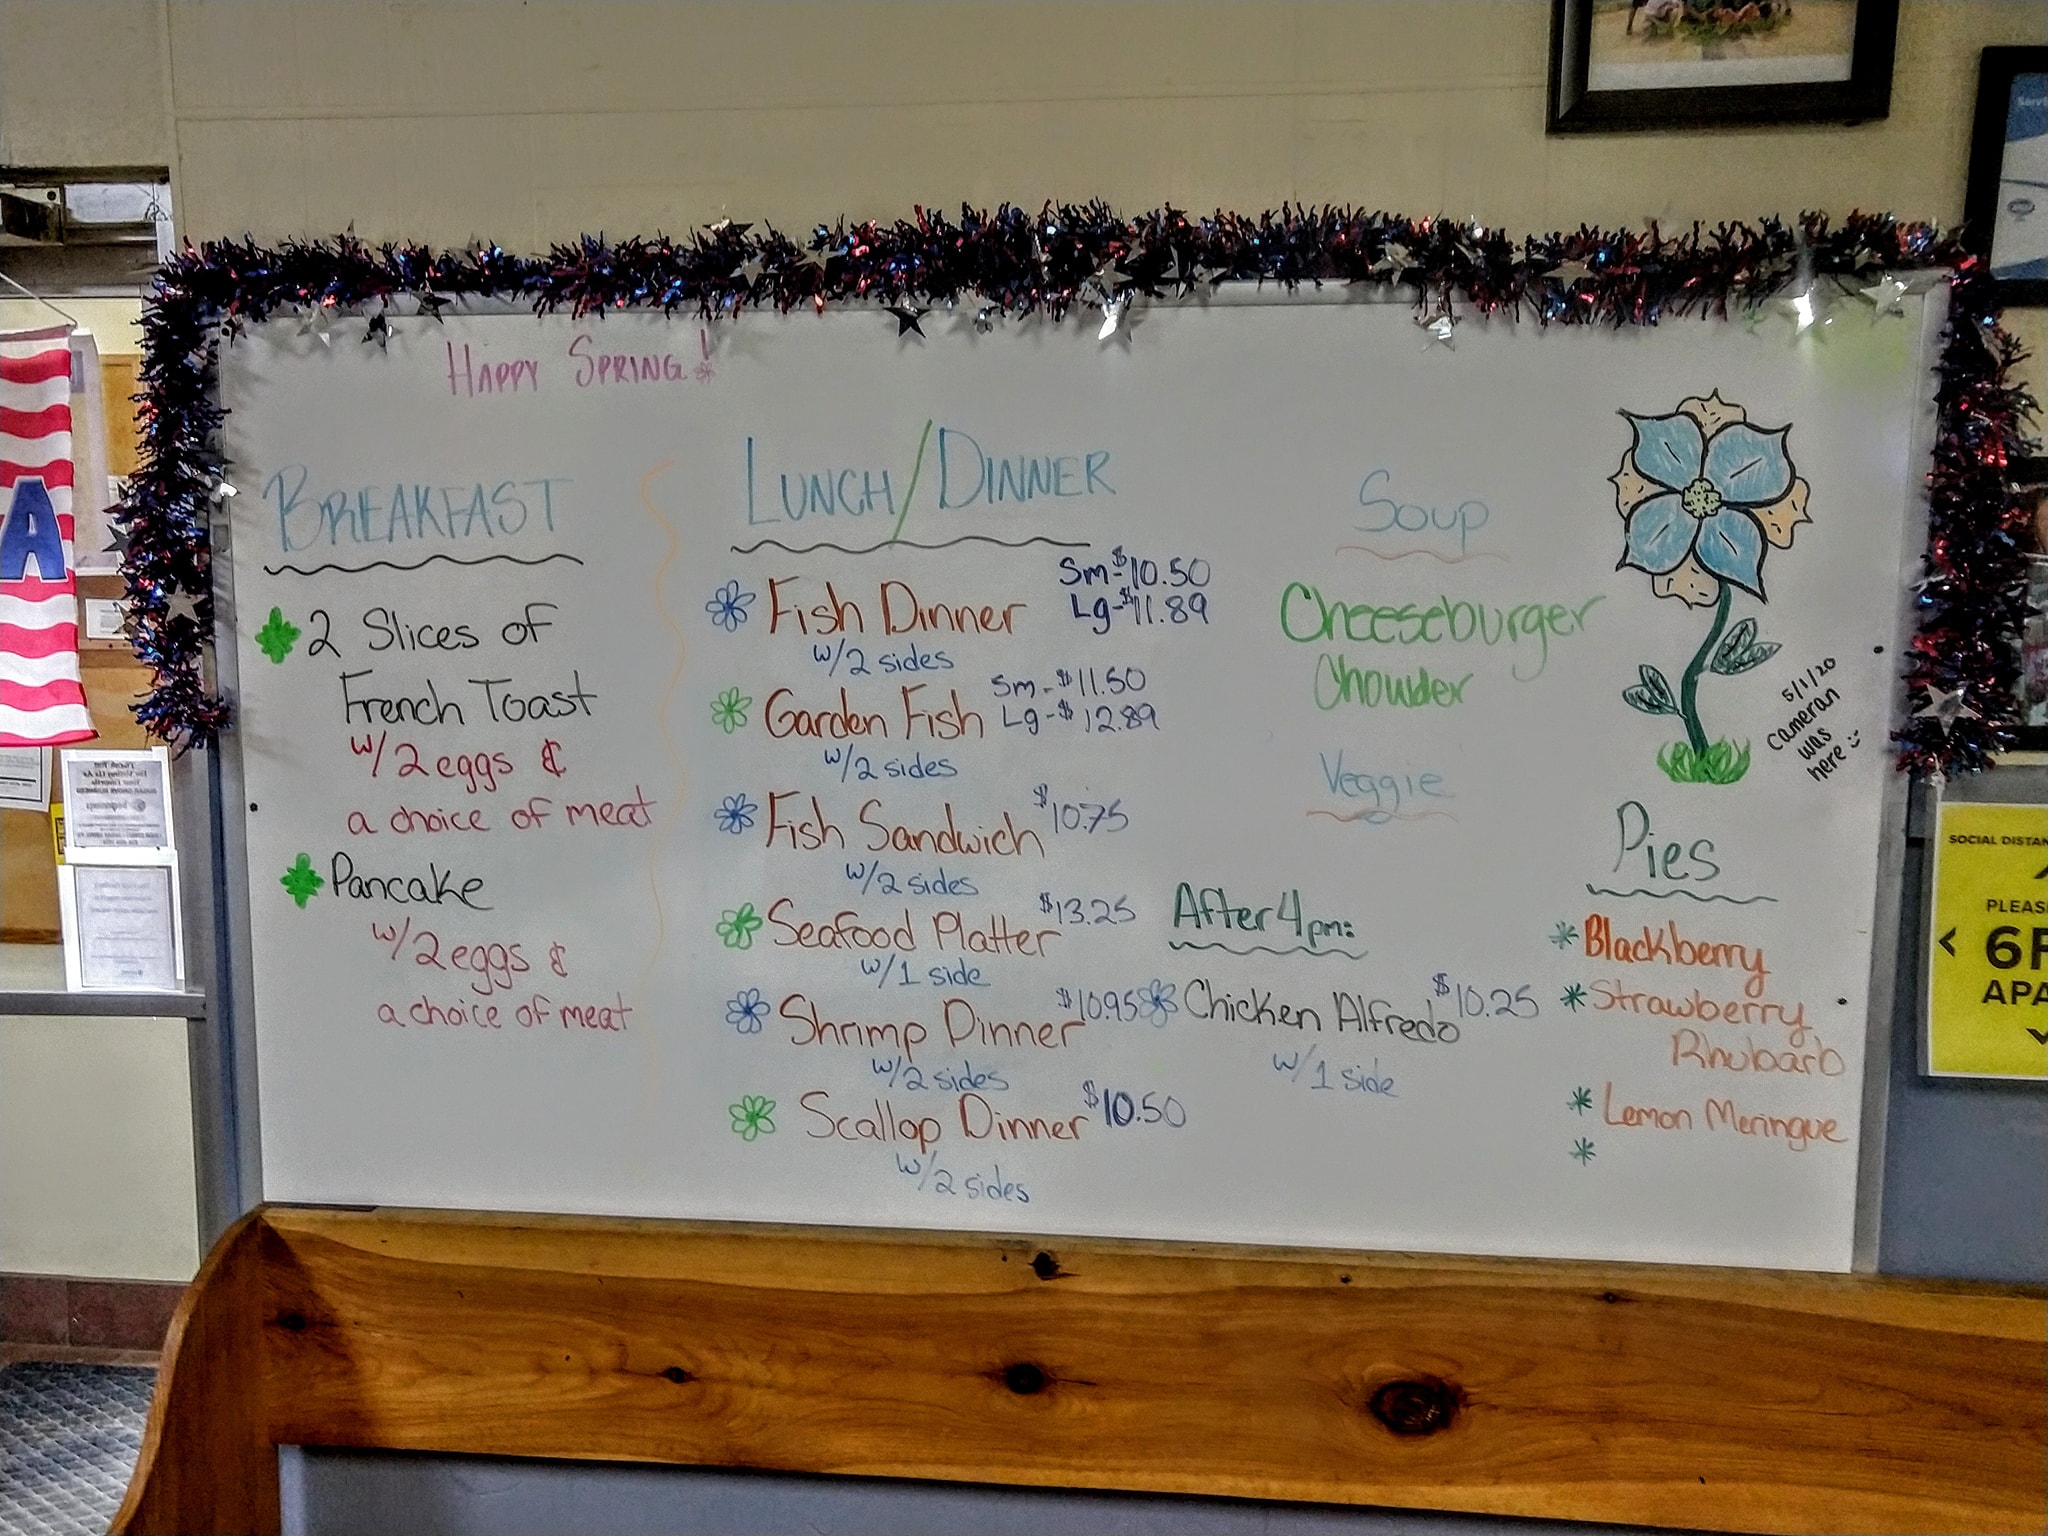 Happy Spring!
Breakfast
2 Slices of
French Toast
w/2 eggs &
a choice of meat
Pancake
w/2 eggs &
a choice of meat
Lunch/Dinner
Fish Dinner Sm-$10.50
Lg-$11.89
w/2 sides
Garden Fish Sm-$11.50
Lg-$12.89
w/2 sides
Fish Sandwich $10.75
w/2 sides
Seafood Platter $13.25
w/1 side
Shrimp Dinner $10.95
w/2 sides
Scallop Dinner $10.50
w/2 sides
Soup
Cheeseburger
Chowder
Veggie
After 4pm:
Chicken Alfredo $10.25
w/1 side
5/1/20
Cameran
was
here
Pies
Blackberry
Strawberry
Rhubarb
Lemon Meringue
A
SOCIAL DISTAN
PLEAS
6F
APA